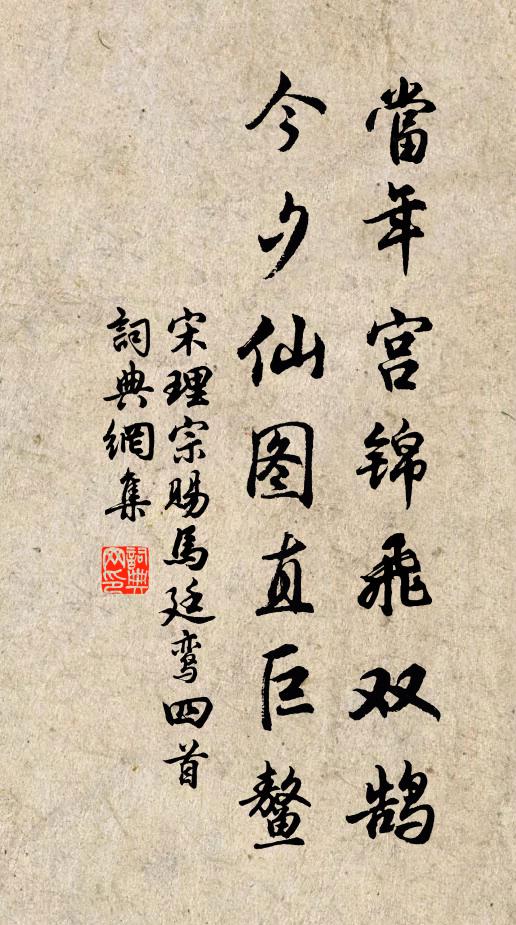 當年宫锦飛双鹄
今夕仙图直巨鳌
宋理宗賜馬廷鸾四首
詞典網集
詞典网印